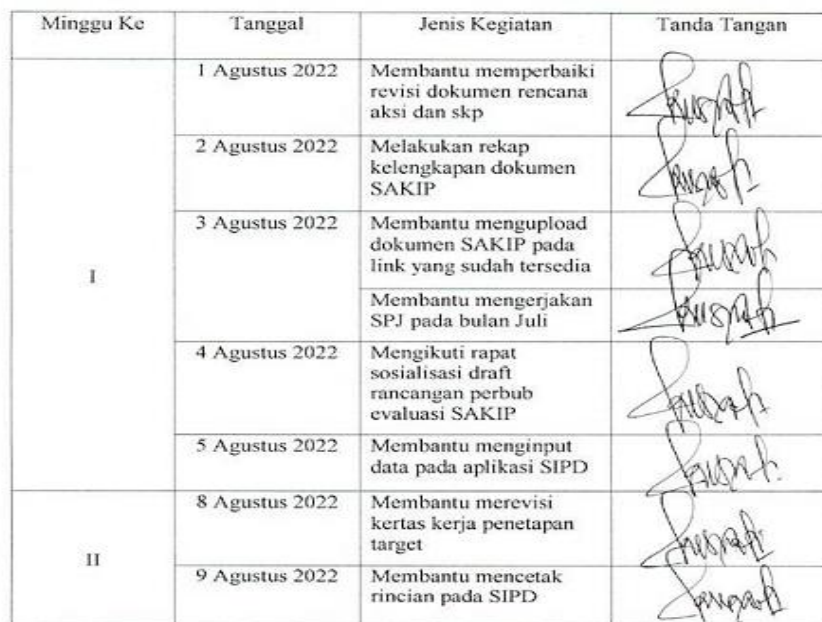 Minggu Ke
Tanggal
Jenis Kegiatan
Tanda Tangan
I
1 Agustus 2022
Membantu memperbaiki
revisi dokumen rencana
aksi dan skp
2 Agustus 2022
Melakukan rekap
kelengkapan dokumen
SAKIP
3 Agustus 2022
Membantu mengupload
dokumen SAKIP pada
link yang sudah tersedia
Membantu mengerjakan
SPJ pada bulan Juli
4 Agustus 2022
Mengikuti rapat
sosialisasi draft
rancangan perbub
evaluasi SAKIP
5 Agustus 2022
Membantu menginput
data pada aplikasi SIPD
II
8 Agustus 2022
Membantu merevisi
kertas kerja penetapan
target
9 Agustus 2022
Membantu mencetak
rincian pada SIPD